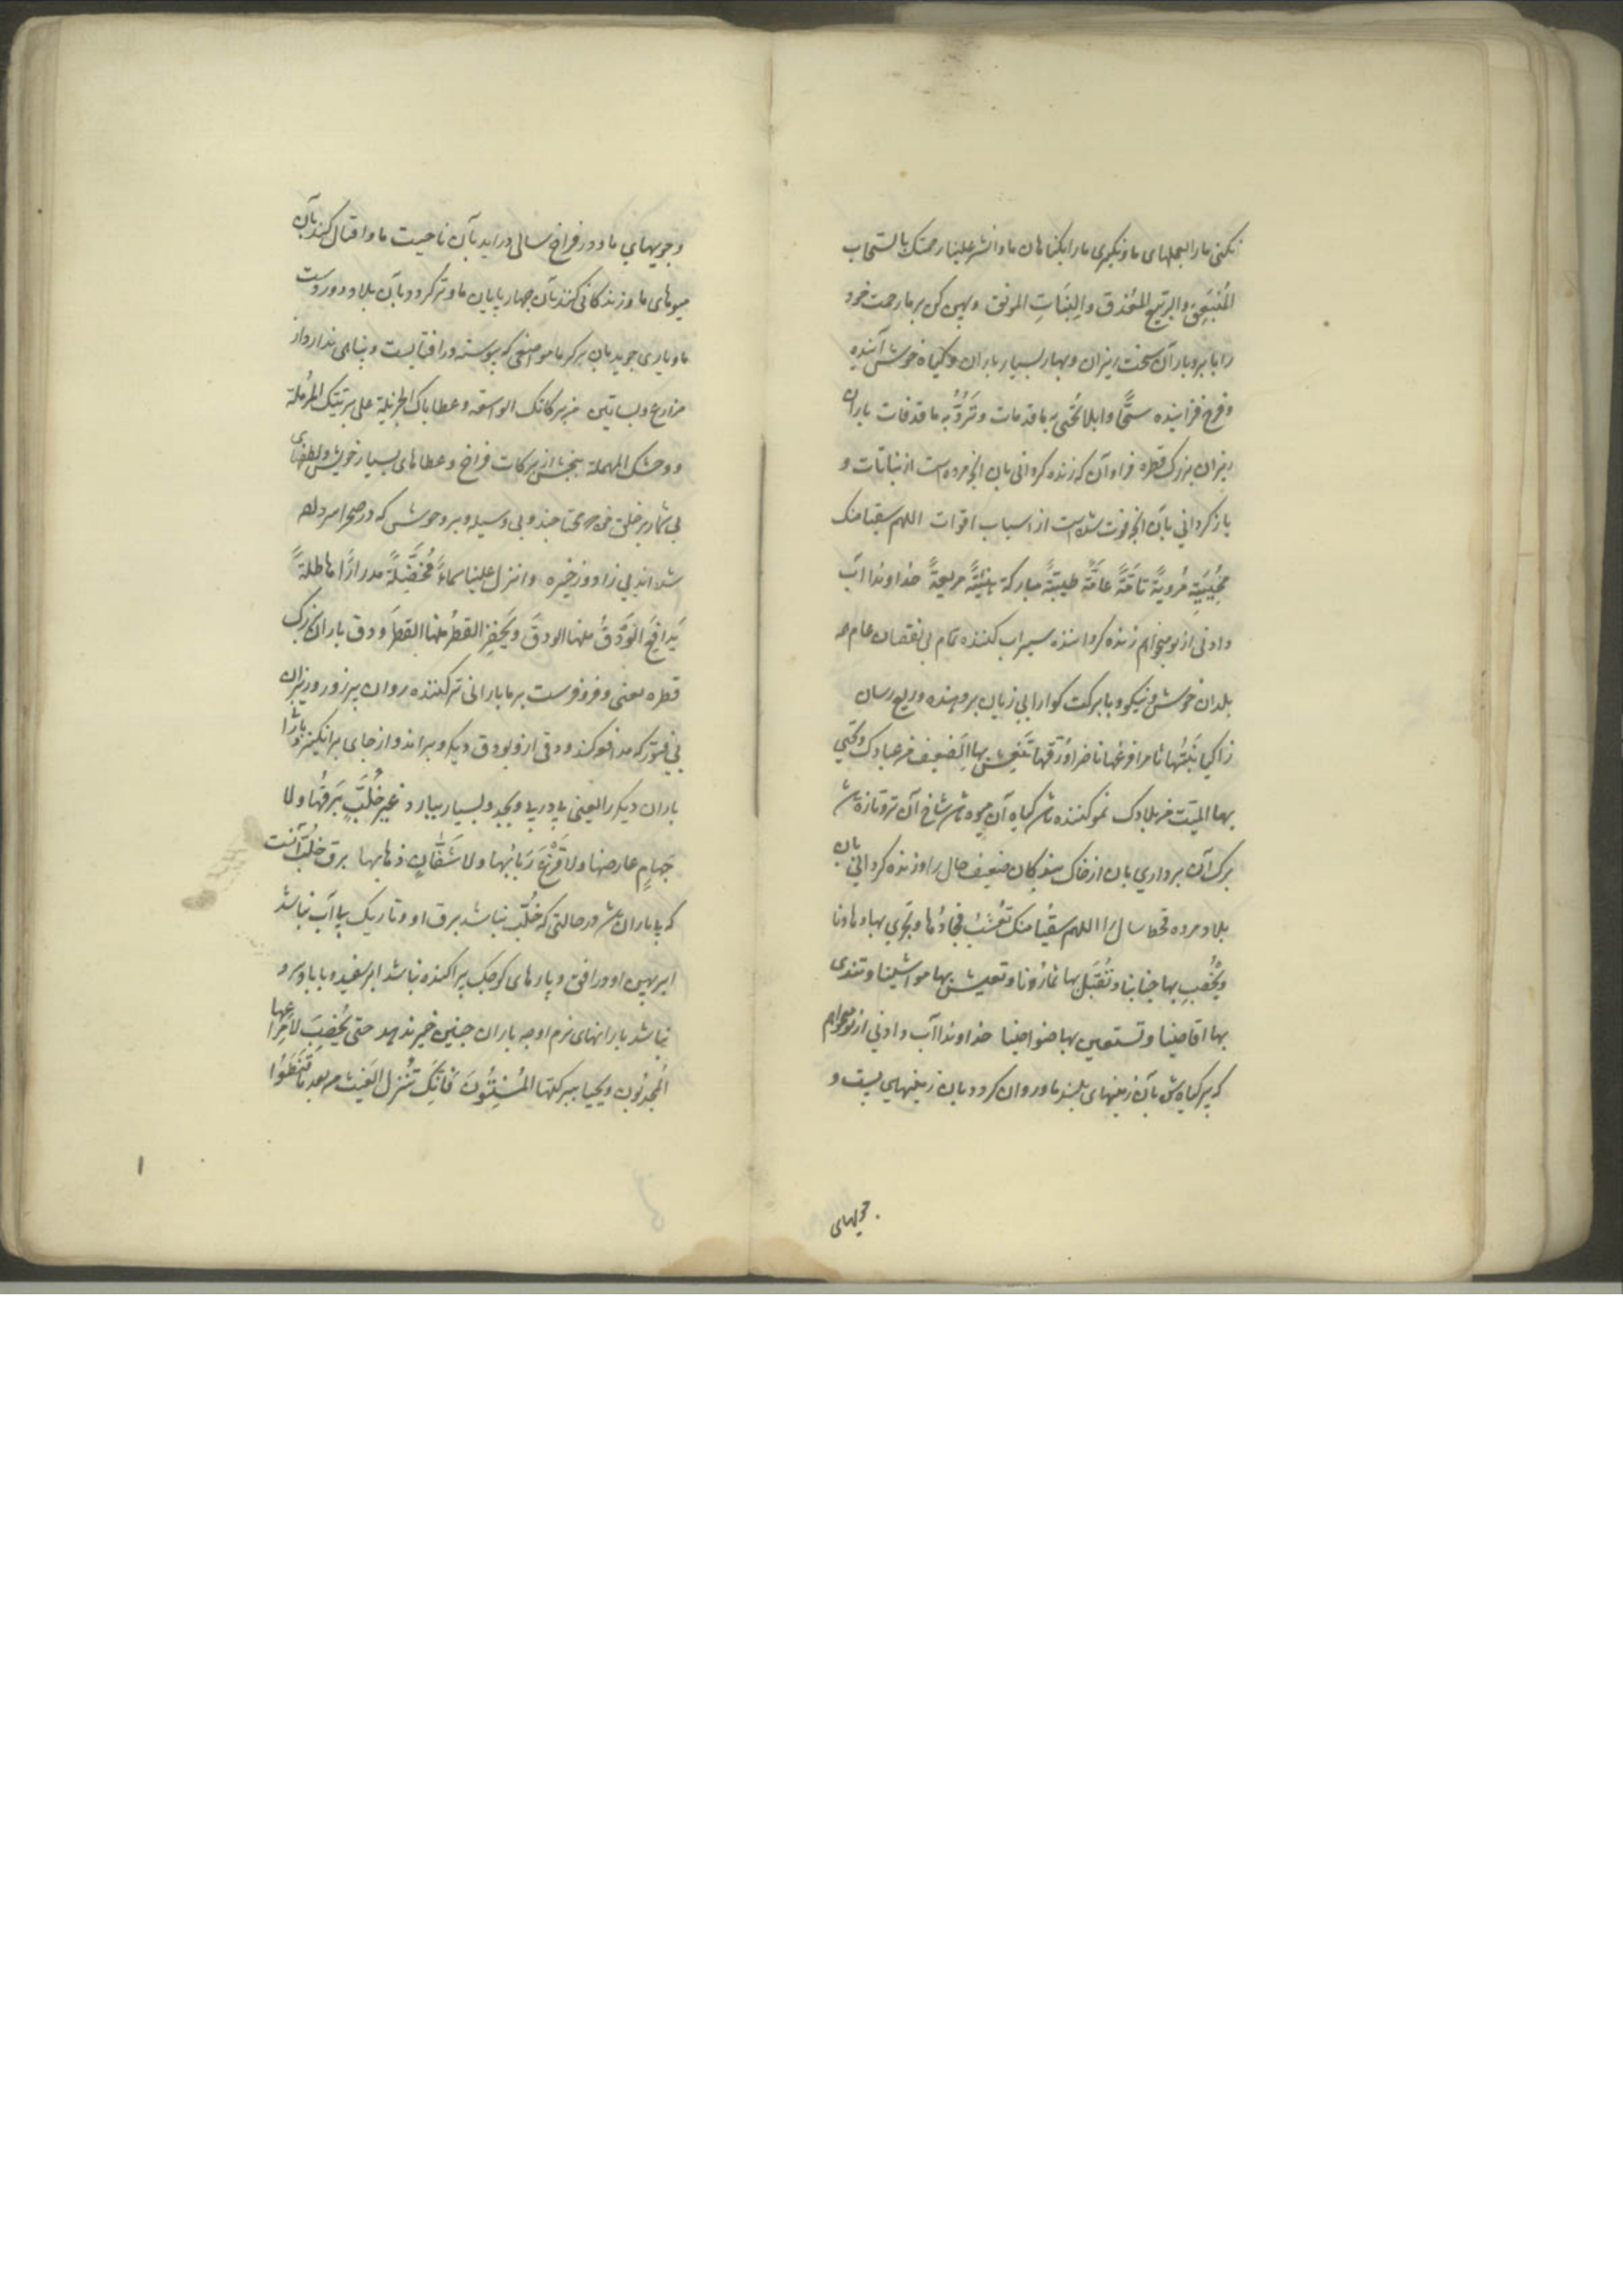 نکنی ما را بعملهای ما و نگیری ما را بگناهان ما و انشر علینا رحمتک بالسحاب
المُنبَعِقِ و الربیع المُغدِق و النَبَاتِ المونق و پهن کن بر ما رحمت خود
را بابر و باران سخت ریزان و بهار بسیار باران و کیاه خوش آینده
و فرح فزاینده سَحًّا وابلا تُحیی به ما قد مات و تَرُدُّ به ما قد فات باران
ریزان بزرک قطره فراوان که زنده کردانی بان انچه مرده است از نباتات و
باز کردانی بان انچه فوت شده است از اسباب اقوات اللهم سقیا منک
مُحیِیَةً مُرویةً تامَّةً عامَّةً طیبةً مبارکة هنیئةً مریعةً خداوندا آب
دادنی از تو میخواهم زنده کرداننده سیراب کننده تمام بی نقصان عام همه
بلدان خوش و نیکو و با برکت کوارا بی زیان برومنده و ریع رسان
زاکیا نَبتُها ثامرا فرعُها ناضرا وَرَقُها تنعش بها الضعیف من عبادک و تحیی
بها المیت من بلادک نمو کننده باشد کیاه آن میوه باشد شاخ آن تر و تازه باشد
برک آن برداری بان از خاک بندکان ضعیف حال را و زنده کردانی بان
بلاد مرده قحط سال را اللهم سُقیًا منک تُعشبُ نجادُها و تجری بها وهادنا
و یُخصِب بها جنابنا و تُقبِل بها ثمارُنا و تعیش بها مواشینا و تندی
بها اقاصینا و تستعین بها ضواحینا خداوندا آب دادنی از تو میخواهم
که پر کیاه شود بآن زمینهای بلند ما و روان کردد بان زمینهای پست و
جویهای
و جویهای ما و در فراخ سالی در آید بآن ناحیت ما و اقبال کنند بآن
میوهای ما و زندکانی کنند بآن چهارپایان ما و تر کردد بآن بلاد دوردست
ما و یاری جوید بان بر کرما مواضعی که پیوسته در افتابست و پناهی ندارد از
مزارع و بساتین من برکاتک الواسعة و عطایاک الجزیلة علی بریتک المُرمِلة
و وحشک المهملة ببخش از برکات فراخ و عطاهای بسیار خویش و لطفهای
بی شمار بر خلق خود که محتاجند و بی وسیله و بر وحوش که در صحرا سر داده
شده اند بی زاد و ذخیره و انزل علینا سماءً مُخضِلَةً مدرارًا هاطلةً
یُدافِعُ الوَدْقُ منها الودقَ و یَحفِزُ القطرُ منها القطرَ ودق باران بزرک
قطره یعنی و فرو فرست بر ما بارانی تر کننده روان پر زور و ریزان
بی فتور که مدافعه کند ودقی از و بودق دیکر و براند و از جای برانکیزد باران
باران دیکر را یعنی پی در پی و بیحد و بسیار ببارد غیر خُلَّبٍ بَرقُها و لا
جَهامٍ عارضها و لا قَزَعٍ رَبابُها و لا شَفَّانٍ ذهابها برق خُلَّب آنست
که با باران نباشد در حالتی که خُلَّب نباشد برق او و تاریک بی آب نباشد
ابر پهن او در افق و پارهای کوچک پراکنده نباشد ابر سفید و با باد سرد
نباشد بارانهای نرم او چه باران چنین خیر ندهد حتی یُخصِبَ لاِمراعِها
المُجدِبُون و یحیا ببرکتها المُسنِتُونَ فاِنَّکَ تُنزِل الغیث من بعد ما قَنَطُوا
۱